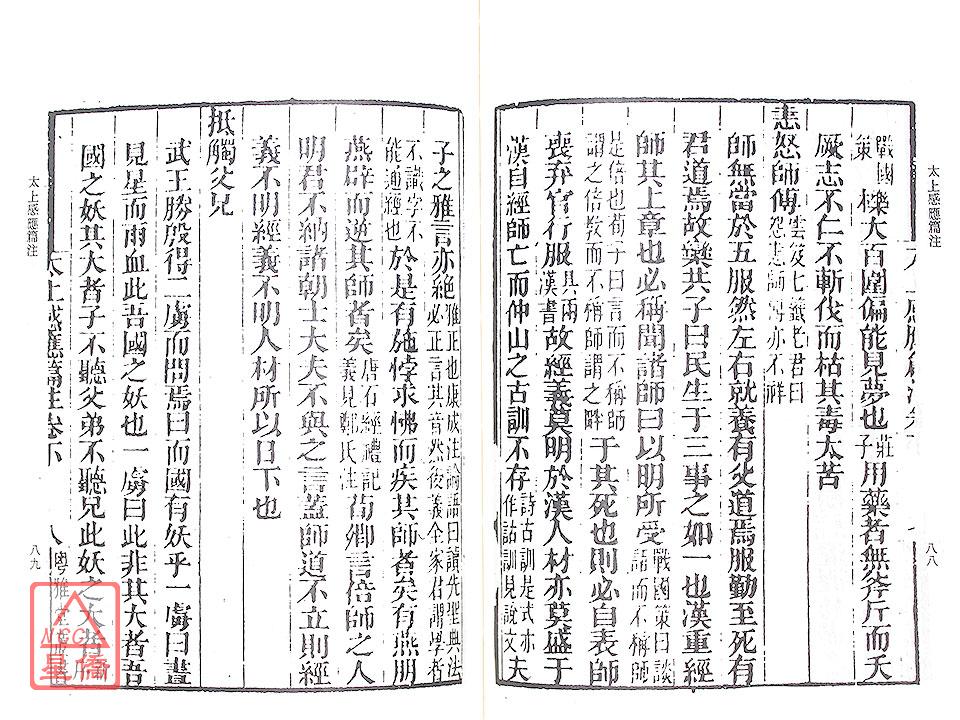 太上感應篇注
八八
戰國策櫟大百圍偏能見夢也莊子用藥者無斧斤而夭
厥志不仁不斬伐而枯其毒太苦
恚怒師傅雲笈七籤老君曰怨恚師傅亦不祥
師無當於五服然左右就養有父道焉服勤至死有
君道焉故欒共子曰民生于三事之如一也漢重經
師其上章也必稱聞諸師曰以明所受戰國策曰談語而不稱師
是倍也荀子曰言而不稱師謂之倍教而不稱師謂之畔于其死也則必自表師
喪弃官行服具兩漢書故經義莫明於漢人材亦莫盛于
漢自經師亡而仲山之古訓不存詩古訓是式亦作詁訓見說文夫
子之雅言亦絕雅正也康成注論語曰讀先聖典法必正言其音然後義全家君謂學者
不識字不能通經也於是有施悖求佛而疾其師者矣有燕朋
燕辟而逆其師者矣唐石經禮記義見鄭氏注荀卿言倍師之人
明君不納諸朝士大夫不與之言蓋師道不立則經
義不明經義不明人材所以日下也
抵觸父兄
武王勝殷得二虜而問焉曰而國有妖乎一虜曰晝
見星而雨血此吾國之妖也一虜曰此非其大者吾
國之妖其大者子不聽父弟不聽兄此妖之大者
太上感應篇注卷下
八
粵雅堂叢書
太上感應篇注
八九
NCG
星僑